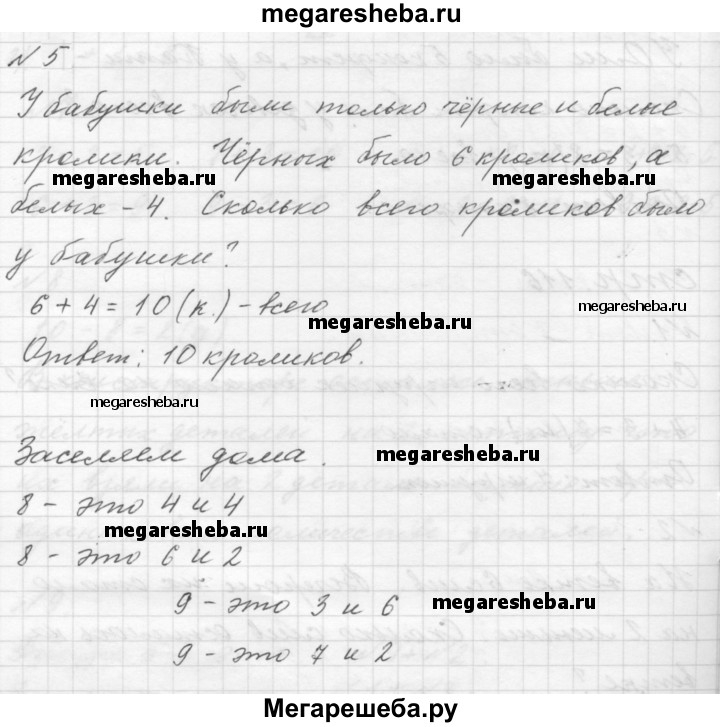 megaresheba.ru
N 5.
У бабушки были только чёрные и белые
кролики. Чёрных было 6 кроликов, а
megaresheba.ru megaresheba.ru
белых - 4. Сколько всего кроликов было
у бабушки?
6 + 4 = 10 (к.) - всего
megaresheba.ru
megaresheba.ru
Ответ: 10 кроликов.
megaresheba.ru
Заселяем дома.
megaresheba.ru
8 - это 4 и 4
megaresheba.ru
8 - это 6 и 2
9 - это 3 и 6
megaresheba.ru
9 - это 7 и 2
Мегарешеба.ру